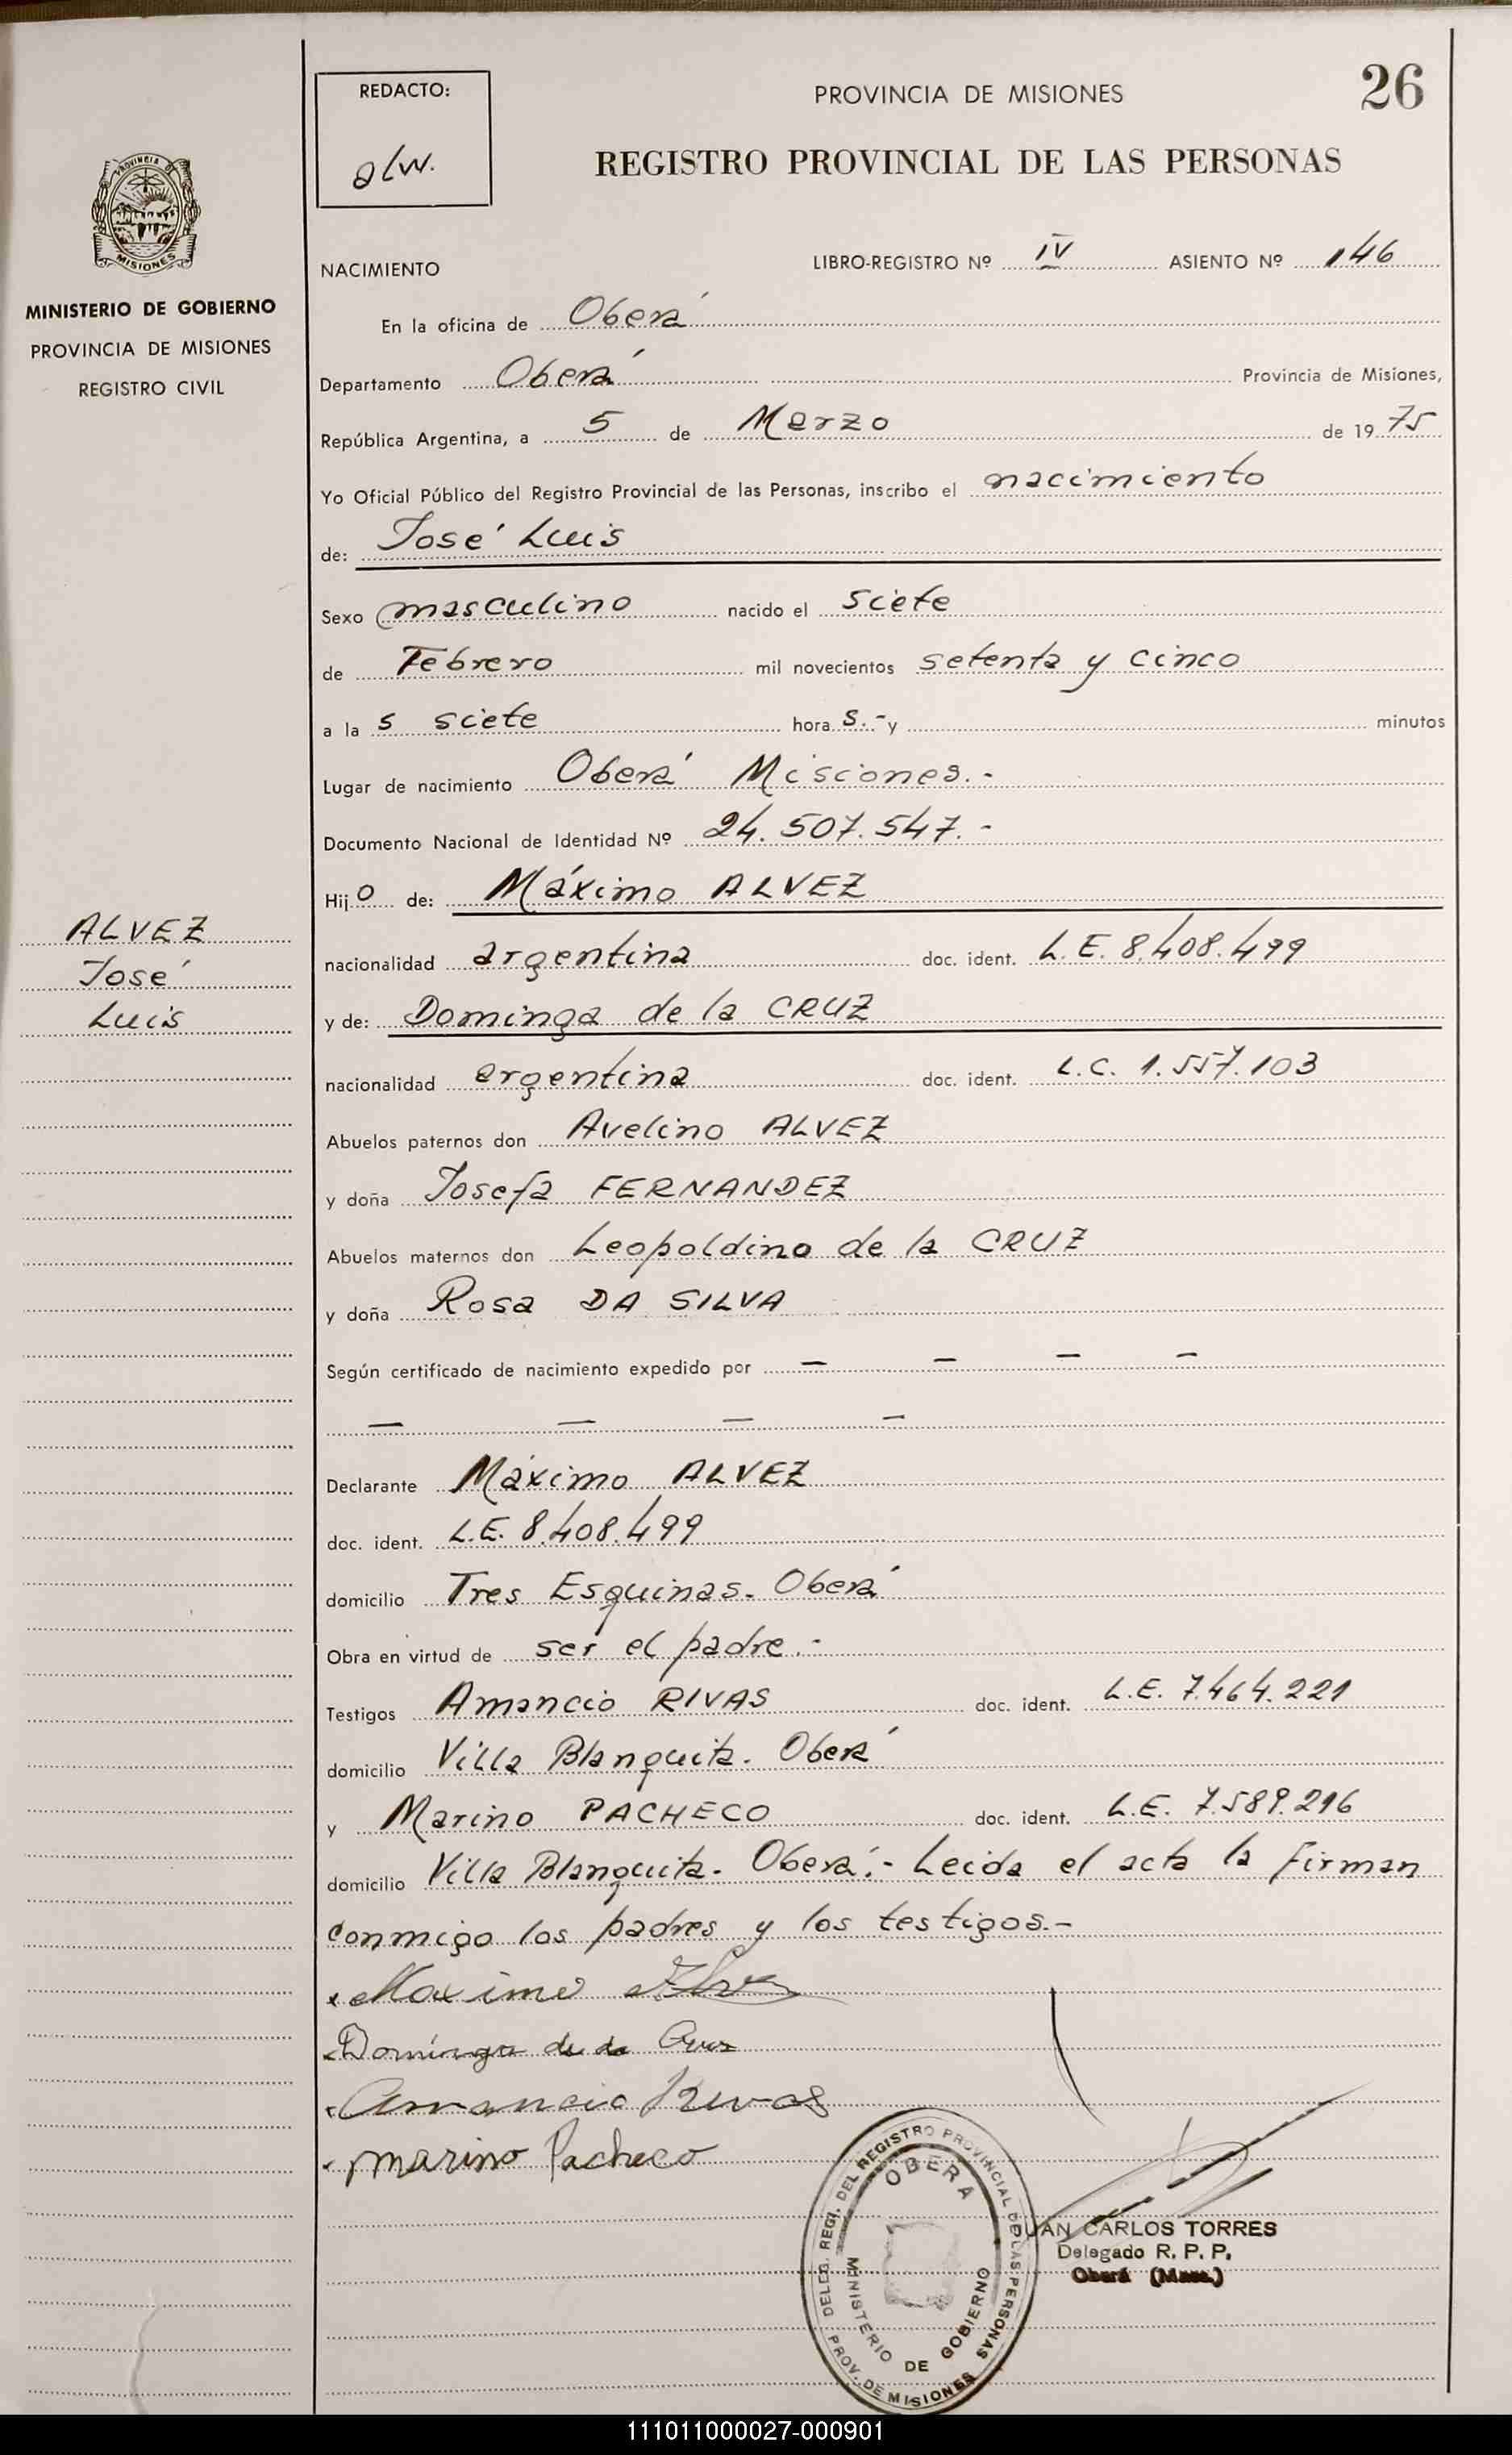 REDACTO:
alw.
PROVINCIA DE MISIONES
26
REGISTRO PROVINCIAL DE LAS PERSONAS
PROVINCIA DE
MISIONES
MINISTERIO DE GOBIERNO
PROVINCIA DE MISIONES
REGISTRO CIVIL
NACIMIENTO
LIBRO-REGISTRO Nº IV ASIENTO Nº 146
En la oficina de Oberá
Departamento Oberá Provincia de Misiones,
República Argentina, a 5 de Marzo de 1975
Yo Oficial Público del Registro Provincial de las Personas, inscribo el nacimiento
de: José Luis
Sexo masculino nacido el siete
de Febrero mil novecientos setenta y cinco
a las siete horas.- y minutos
Lugar de nacimiento Oberá Misiones.-
Documento Nacional de Identidad Nº 24.507.547.-
Hijo de: Máximo ALVEZ
ALVEZ
José
Luis
nacionalidad argentina doc. ident. L.E. 8.408.499
y de: Dominga de la CRUZ
nacionalidad argentina doc. ident. L.C. 1.557.103
Abuelos paternos don Avelino ALVEZ
y doña Josefa FERNANDEZ
Abuelos maternos don Leopoldino de la CRUZ
y doña Rosa DA SILVA
Según certificado de nacimiento expedido por — — — —
— — — —
Declarante Máximo ALVEZ
doc. ident. L.E. 8.408.499
domicilio Tres Esquinas. Oberá
Obra en virtud de ser el padre.-
Testigos Amancio RIVAS doc. ident. L.E. 7.464.221
domicilio Villa Blanquita. Oberá
y Marino PACHECO doc. ident. L.E. 7.589.216
domicilio Villa Blanquita. Oberá.- Leida el acta la firman
conmigo los padres y los testigos.-
Maximo
Dominga de la Cruz
Amancio Rivas
Marino Pacheco
DELEG. REGI. DEL REGISTRO PROVINCIAL DE LAS PERSONAS
OBERA
MINISTERIO DE GOBIERNO
PROV. DE MISIONES
JUAN CARLOS TORRES
Delegado R. P. P.
Oberá (Mnes.)
111011000027-000901